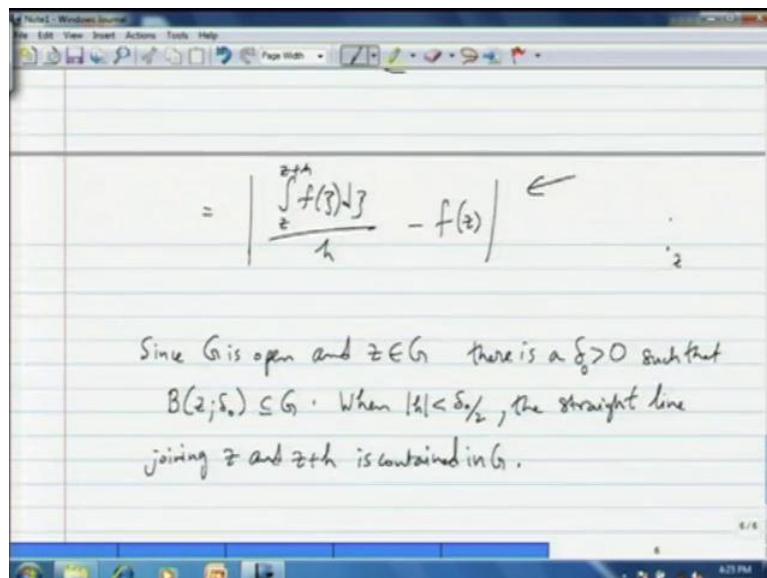 Note1 - Windows Journal
File Edit View Insert Actions Tools Help
Page Width
= | ∫_z^{z+h} f(ζ)dζ / h - f(z) | ←
z
Since G is open and z ∈ G there is a δ₀>0 such that
B(z;δ₀) ⊆ G. When |h| < δ₀/2, the straight line
joining z and z+h is contained in G.
6/6
6
4:25 PM